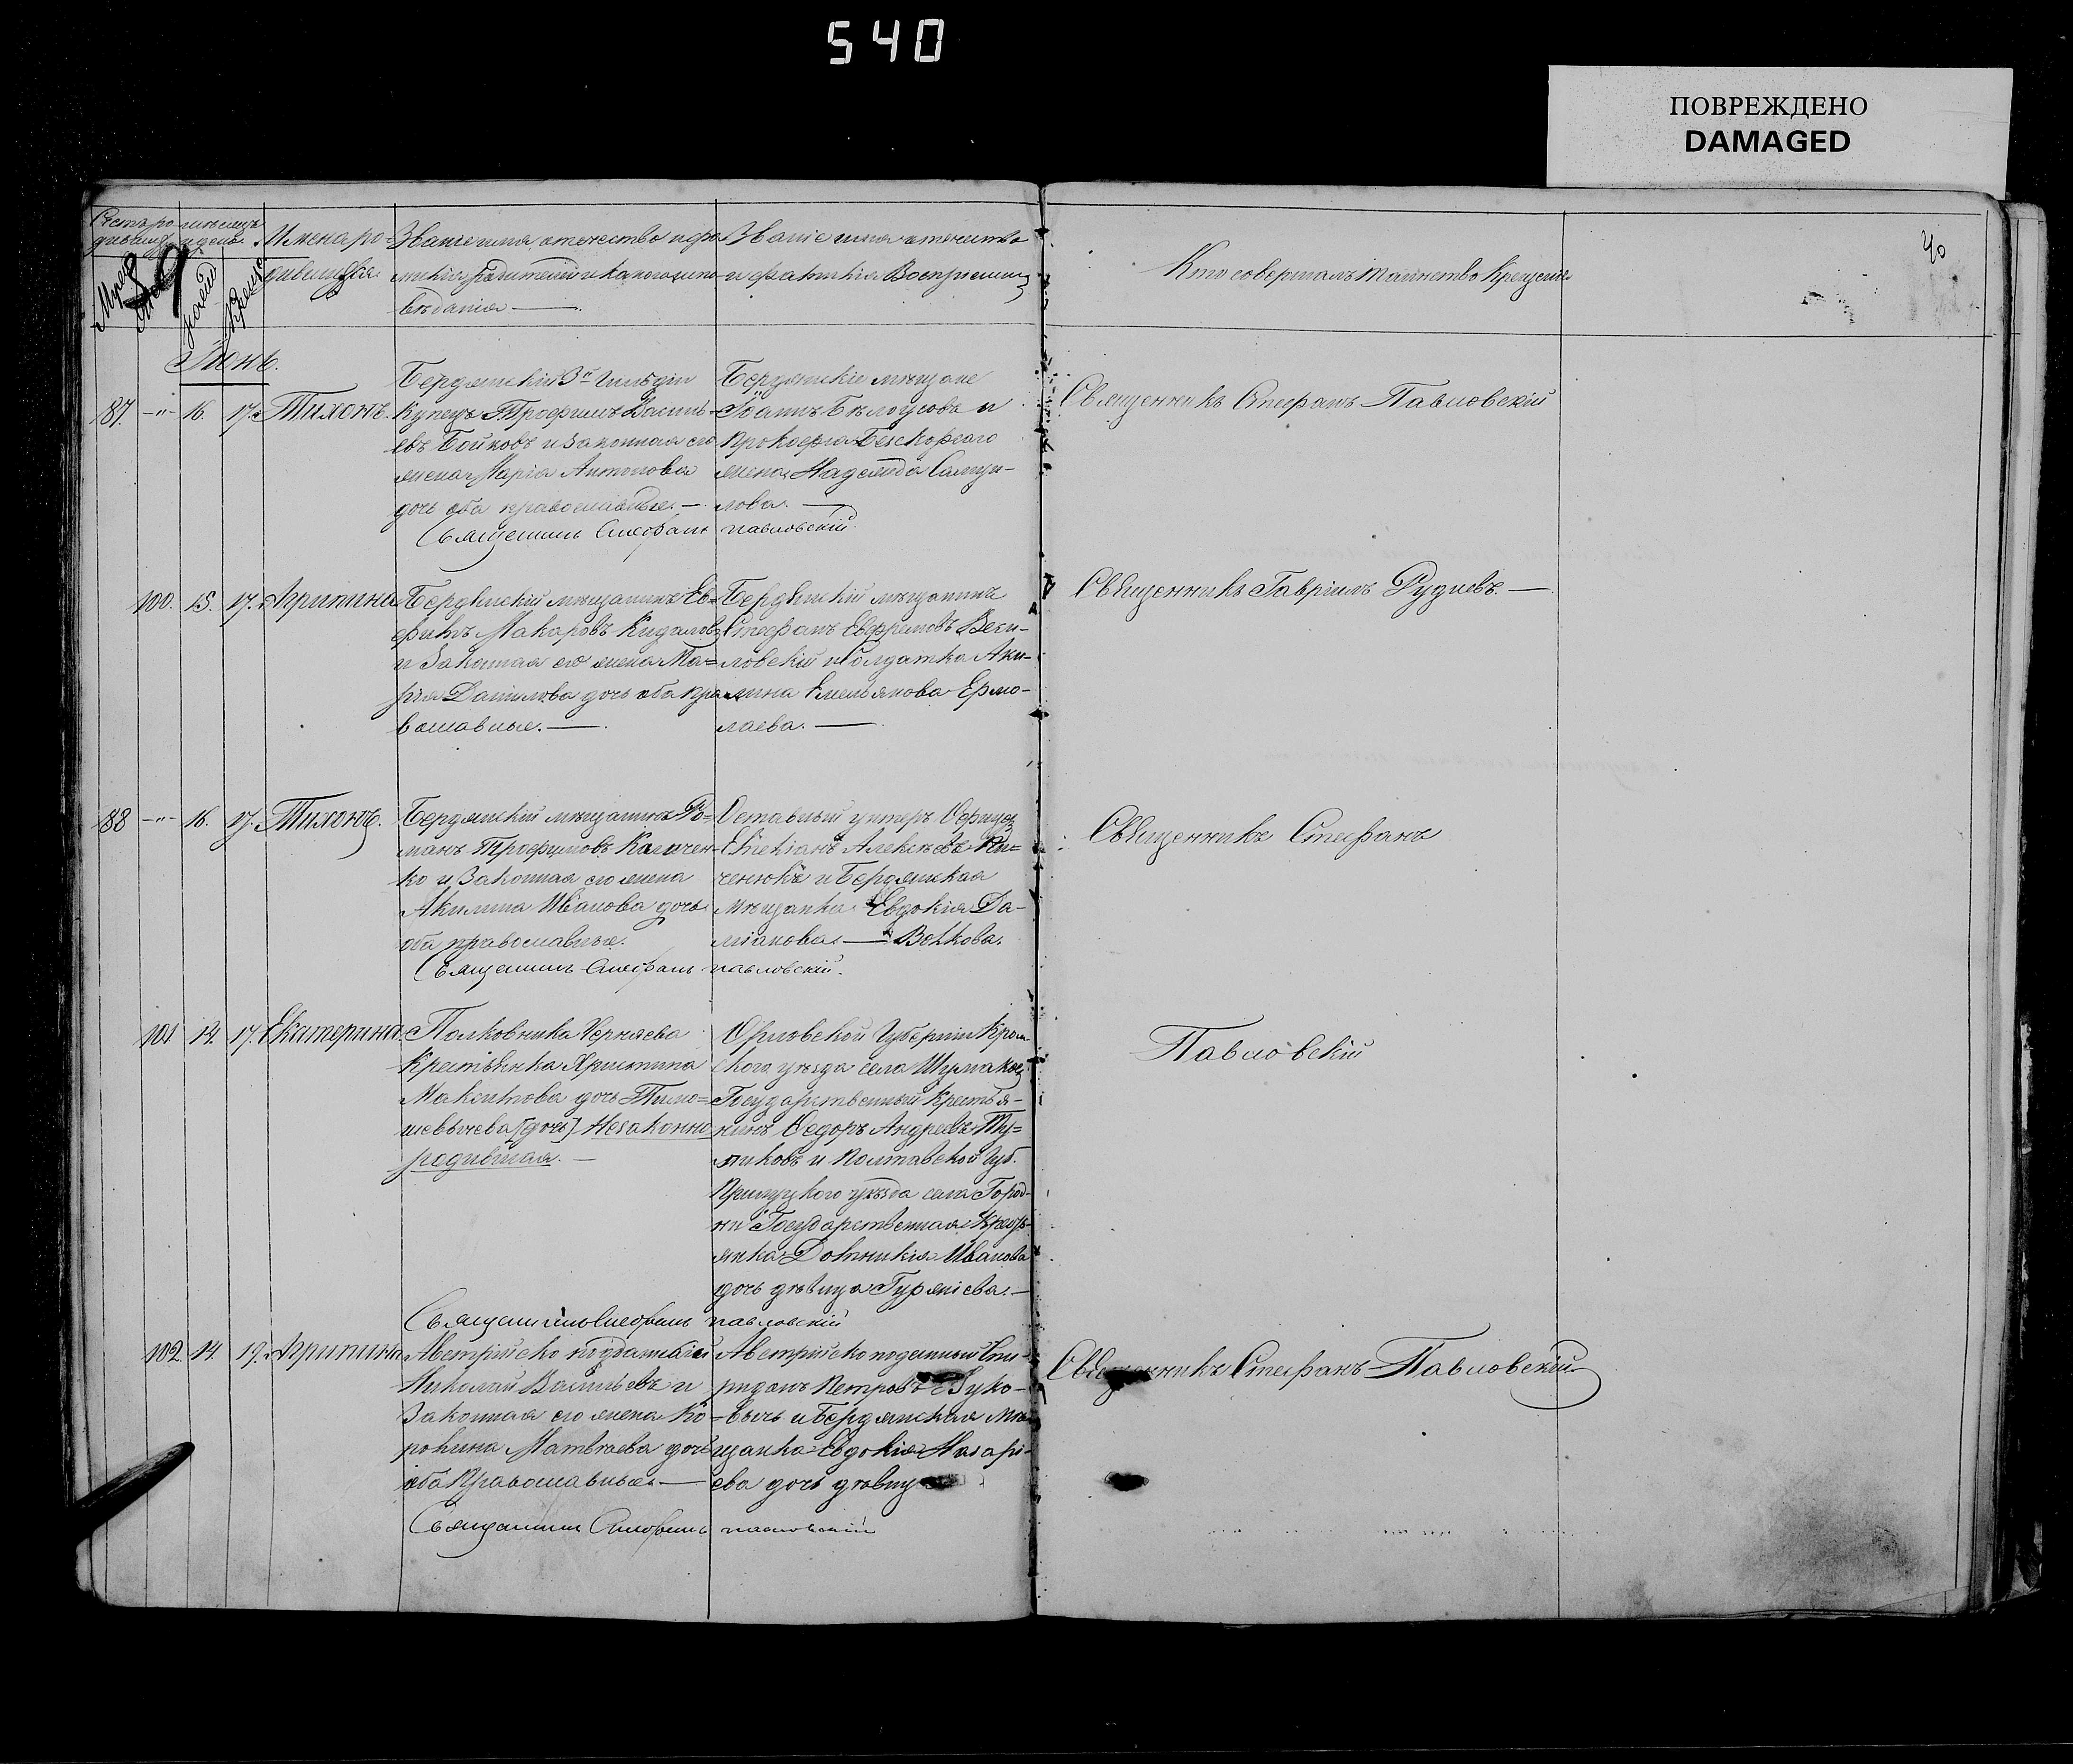 540
ПОВРЕЖДЕНО
DAMAGED
40
Имена ро-
дившихся.
Званіе имя отечество и фа-
милія родителей и какого испо-
вѣданія
Званіе имя отечество
и фамилія Воспріемни
Кто совершалъ таинство Крещенія
Іюнь.
87. -"- 16. 17. Тихонъ.
Бердянскій 3й Гильдіи
Купецъ Трофимъ Василь-
евъ Бойковъ и Законная его
жена Марія Антонова
дочь оба православные. —
Бердянскіе мѣщане
Іоаннъ Бѣлоусовъ и
Прокофія Безкорсаго
жена Надежда Самуи-
лова. —
Священникъ Стефанъ Павловскій
Священникъ Стефанъ Павловскій.
100. 15. 17. Агрипина
Бердянскій мѣщанинъ Ев-
фимъ Макаровъ Кидалов
и Законная его жена Ма=
рія Данилова дочь оба пра
вославные. —
Бердянскій мѣщанинъ
Стефанъ Евфремовъ Веси-
ловскій и Солдатка Аки-
лина Емельянова Ермо-
лаева. —
Священникъ Гавріилъ Рудневъ. —
88 -"- 16. 17. Тихонъ.
Бердянскій мѣщанинъ Ро=
манъ Трофимовъ Калачен-
ко и Законная его жена
Акилина Иванова дочь
оба православные.
Отставный унтеръ Офицер
Алексѣевъ
и Бердянская
Мѣщанка Евдокія Да-
міанова — Волкова.
Священникъ Стефанъ
Священникъ Стефанъ Павловскій.
101 14. 17. Екатерина.
Полковника Черняева
Крестьянка Христина
Максимова дочь Тимо=
шевычева [дочь] Незаконно
родившая. —
Орловской Губерніи Кром
скаго уѣзда села Шумаков
Государственный Крестья-
нинъ Ѳедоръ Андреевъ Ту=
пиковъ и Полтавской Губ.
Прилуцкого уѣзда села Город-
ни Государственная Кресть-
янка Домникія Иванова
дочь дѣвица Гурžіева. —
Павловскій
Священникъ Стефанъ Павловскій
102. 14. 19. Агрипина
Австрійско подданный
Николай Васильевъ и
Законная его жена Ко=
рокина Матвѣева дочь
оба Православные. —
Австрійско поданный Спи-
ридонъ Петровъ
вычъ и Бердянская Мѣ
щанка Евдокія Назарі-
ева дочь дѣвиц
Священникъ Стефанъ Павловскій
Священникъ Стефанъ Павловскій